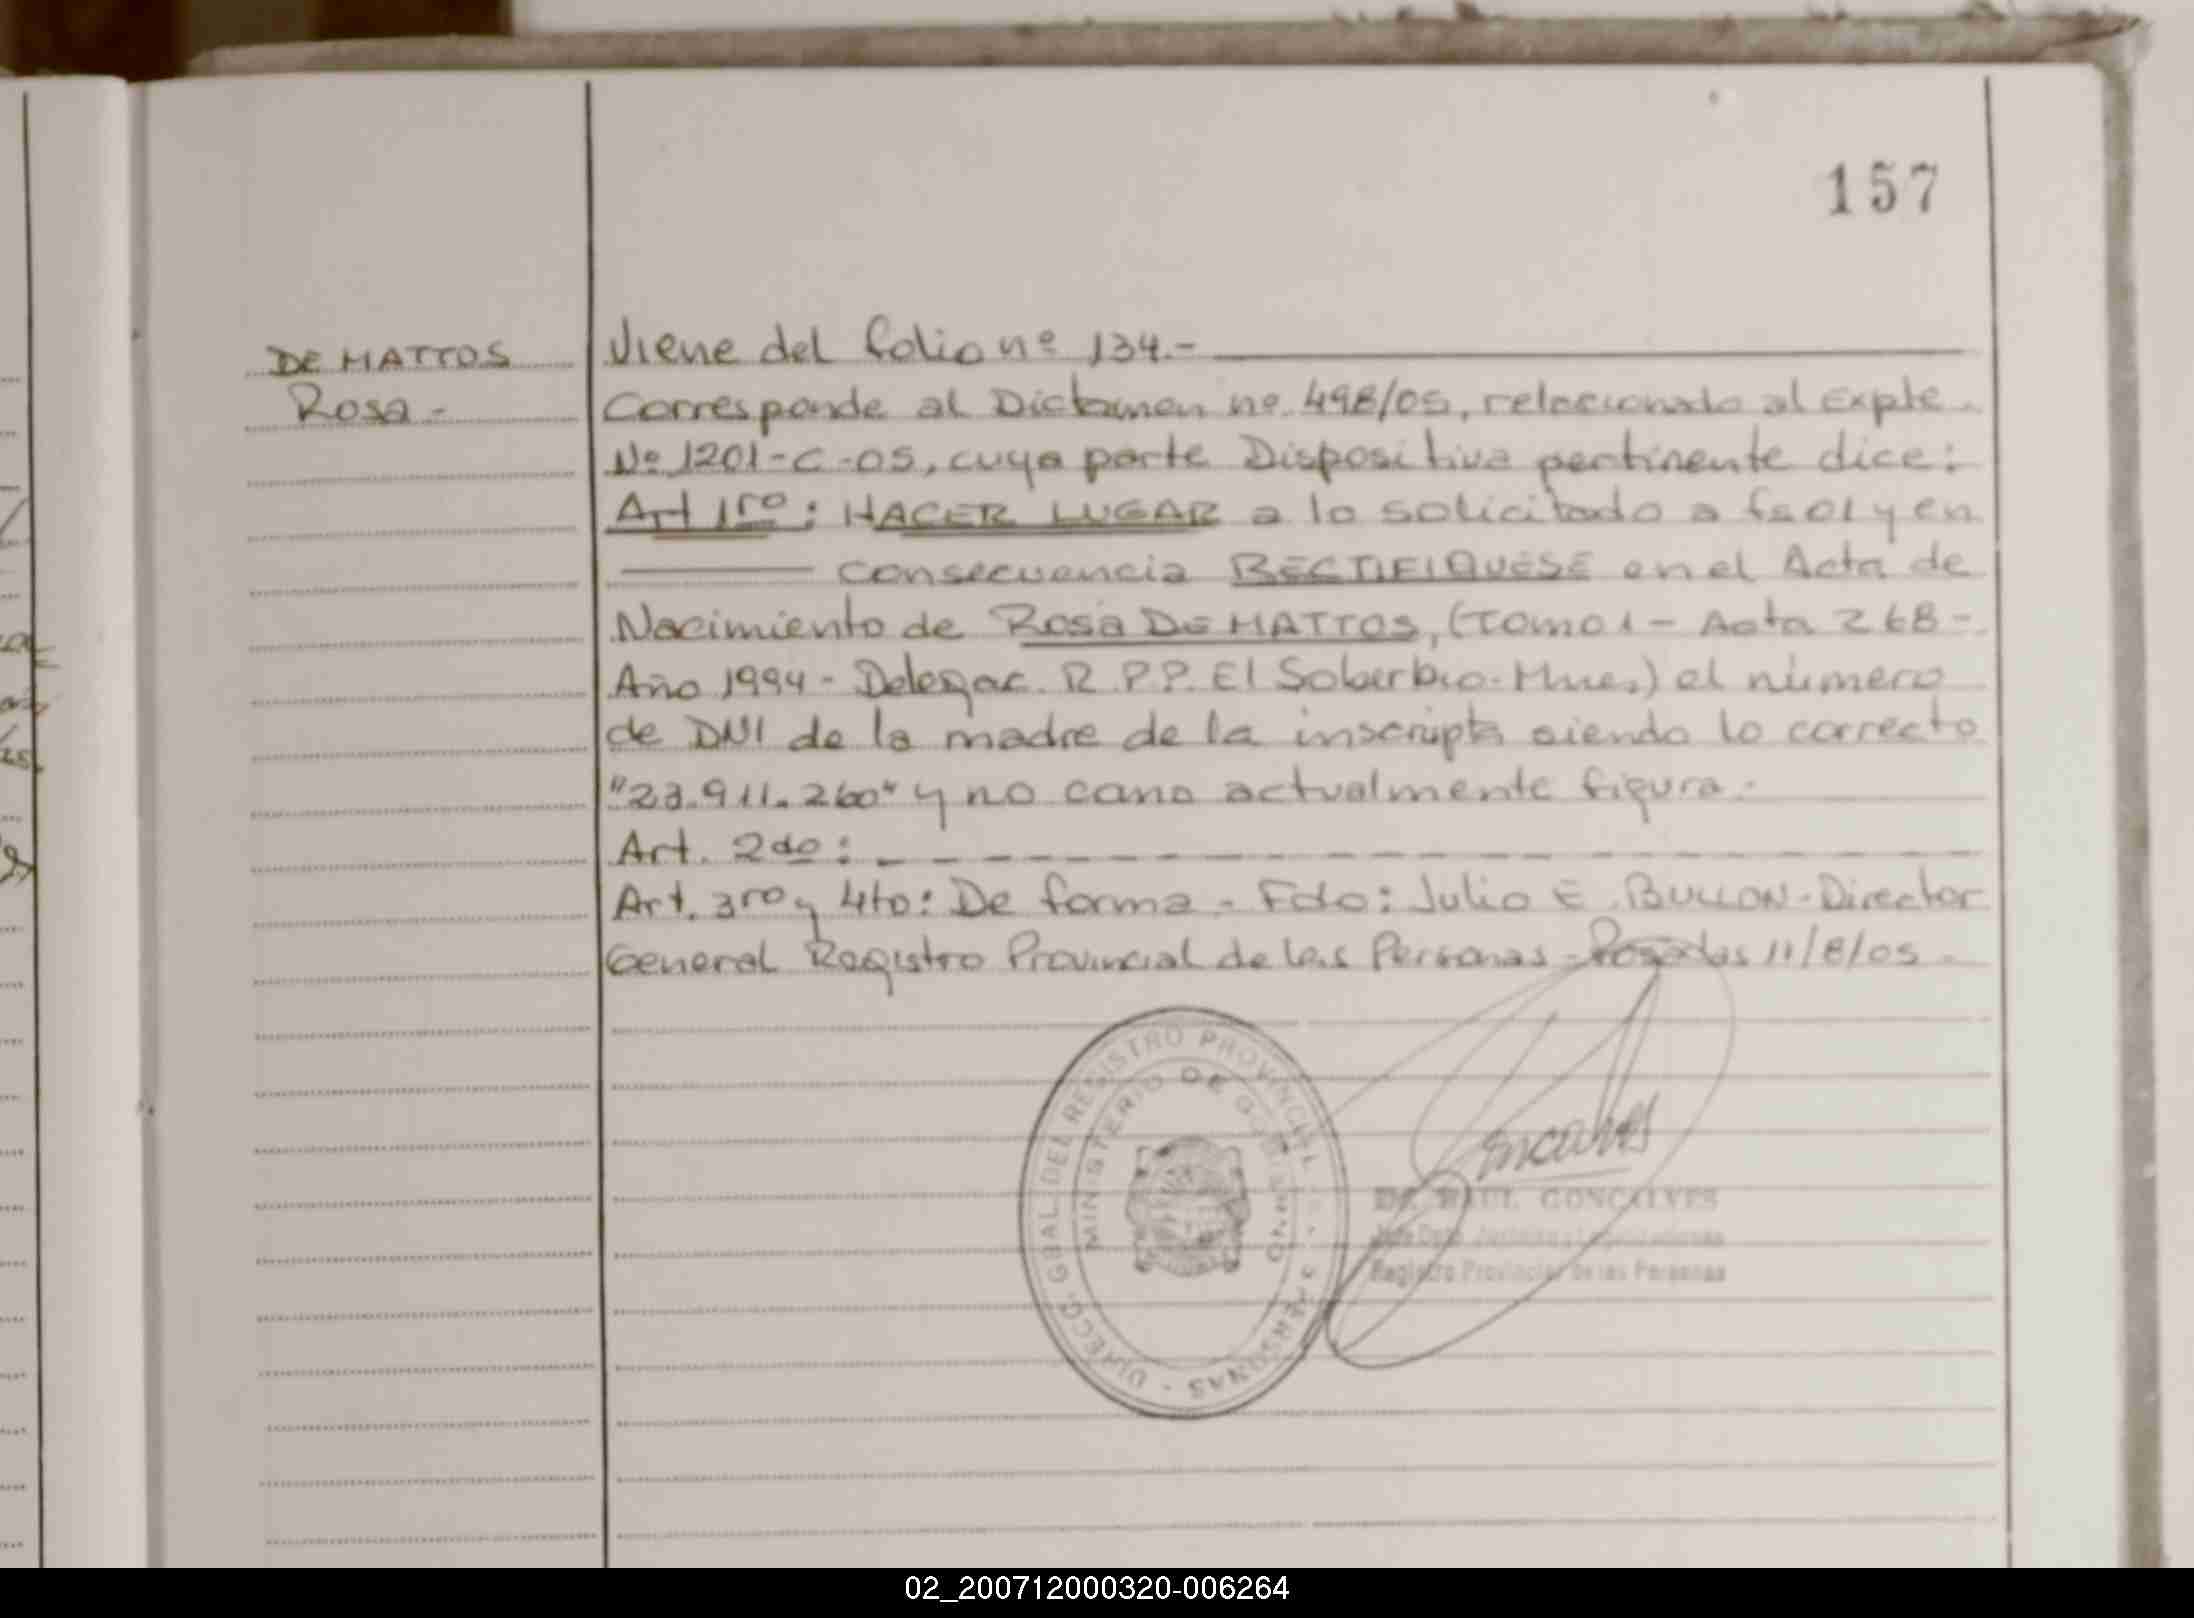 157
DE MATTOS
Rosa -
Viene del folio nº 134.-
Corresponde al Dictamen nº 498/05, relacionado al Expte.
Nº 1201-C-05, cuya parte Dispositiva pertinente dice:
Art 1ro: HACER LUGAR a lo solicitado a fs 01 y en
consecuencia RECTIFIQUESE en el Acta de
Nacimiento de Rosa DE MATTOS, (Tomo 1 - Acta 268 -
Año 1994 - Delegac. R.P.P. El Soberbio - Mnes.) el número
de DNI de la madre de la inscripta siendo lo correcto
"23.911.260" y no como actualmente figura.-
Art. 2do: _ _ _ _ _ _ _ _ _ _ _ _ _ _ _ _ _ _ _ _
Art. 3ro y 4to: De forma - Fdo: Julio E. BULLON - Director
General Registro Provincial de las Personas - Posadas 11/8/05 -
DIRECC. GRAL. DEL REGISTRO PROVINCIAL PERSONAS
MINISTERIO DE GOBIERNO
Goncalves
Dr. RAUL GONCALVES
Jefe Dpto.
Registro Provincial de las Personas
02_200712000320-006264